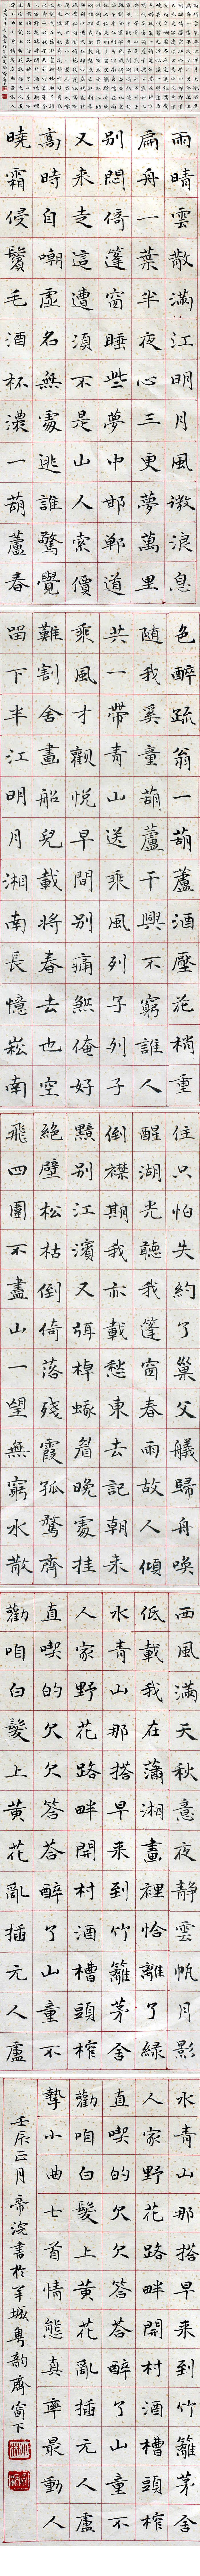 雨晴雲散滿江明月風微浪息
扁舟一葉半夜心三更夢萬里
別悶倚篷窗睡些夢中邯鄲道
又来走這遭須不是山人索價
高時自嘲虛名無處逃誰驚覺
曉霜侵鬢毛酒杯濃一葫蘆春
色醉疏翁一葫蘆酒壓花梢重
随我奚童葫蘆干興不窮誰人
共一帶青山送乘風列子列子
乘風才觀悅早間別痛煞俺好
難割舍畫船兒載將春去也空
留下半江明月湘南長憶崧南
住只怕失約了巢父艤歸舟喚
醒湖光聽我篷窗春雨故人傾
倒襟期我亦載愁東去記朝来
黯別江濱又弭棹蛾眉晚處挂
絕壁松枯倒倚落殘霞孤鶩齊
飛四圍不盡山一望無窮水散
西風滿天秋意夜靜雲帆月影
低載我在瀟湘畫裡恰離了綠
水青山那搭早来到竹籬茅舍
人家野花路畔開村酒槽頭榨
直喫的欠欠答荅醉了山童不
勸咱白髮上黃花亂插元人盧
水青山那搭早来到竹籬茅舍
人家野花路畔開村酒槽頭榨
直喫的欠欠答荅醉了山童不
勸咱白髮上黃花亂插元人盧
摯小曲七首情態真率最動人
壬辰正月帝浣書於羊城粵韵齊窗下